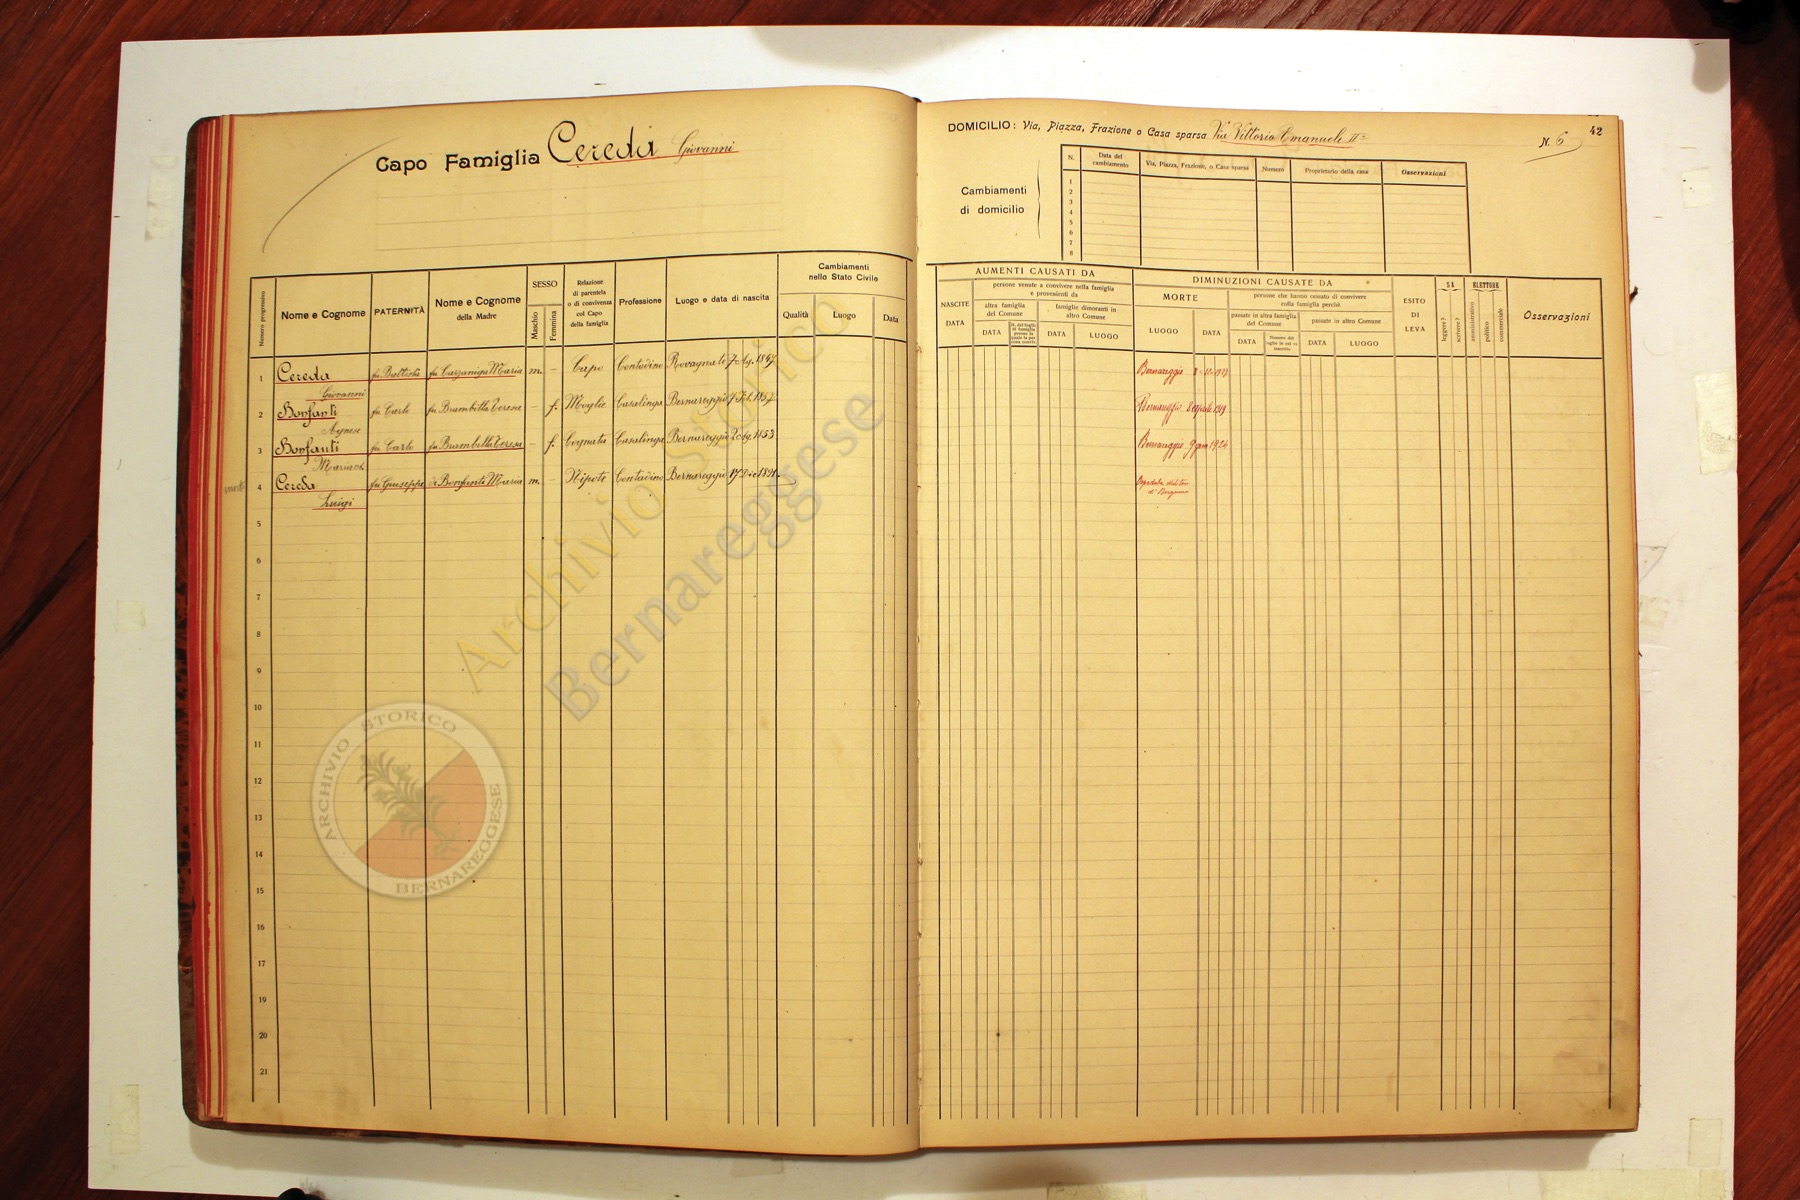 Capo Famiglia Cereda Giovanni
Numero progressivo
Nome e Cognome
PATERNITÀ
Nome e Cognome
della Madre
SESSO
Maschio
Femmina
Relazione
di parentela
o di convivenza
col Capo
della famiglia
Professione
Luogo e data di nascita
Cambiamenti
nello Stato Civile
Qualità
Luogo
Data
1 Cereda fu Battista fu Cazzaniga Maria m. - Capo Contadino Rovagnate 7 Ag. 1847
Giovanni
2 Bonfanti fu Carlo fu Brambilla Teresa - f. Moglie Casalinga Bernareggio
Agnese
3 Bonfanti fu Carlo fu Brambilla Teresa - f. Cognata Casalinga Bernareggio 2 Ag. 1853
4 Cereda fu Giuseppe di Bonfanti Maria m. - Nipote Contadino Bernareggio 17 Dic 1891
Luigi
5
6
7
8
9
10
11
12
13
14
15
16
17
18
19
20
21
42
DOMICILIO: Via, Piazza, Frazione o Casa sparsa Via Vittorio Emanuele II°
N. 6
Cambiamenti
di domicilio
N.
Data del
cambiamento
Via, Piazza, Frazione, o Casa sparsa
Numero
Proprietario della casa
Osservazioni
1
2
3
4
5
6
7
8
AUMENTI CAUSATI DA
NASCITE
DATA
persone venute a convivere nella famiglia
e provenienti da
altra famiglia
del Comune
DATA
famiglie dimoranti in
altro Comune
DATA
LUOGO
DIMINUZIONI CAUSATE DA
MORTE
LUOGO
DATA
persone che hanno cessato di convivere
colla famiglia perchè
passate in altra famiglia
del Comune
DATA
Numero del
foglio in cui va
inscritto
passate in altro Comune
DATA
LUOGO
ESITO
DI
LEVA
SA
leggere?
scrivere?
ELETTORE
amministrativo
politico
commerciale
Osservazioni
Bernareggio
Bernareggio 8 aprile 1919
Bernareggio 9 gen 1924
Ospedale militare
di Bergamo
Archivio Storico
Bernareggese
ARCHIVIO STORICO
BERNAREGGESE